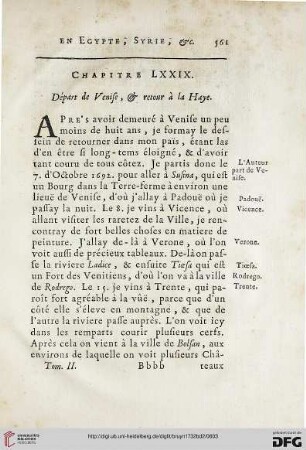 EN EGYPTE, SYRIE, &c. 561
CHAPITRE LXXIX.
Départ de Venise, & retour à la Haye.
APRE's avoir demeuré à Venise un peu
moins de huit ans, je formay le des-
sein de retourner dans mon païs, étant las
d'en être si long-tems éloigné, & d'avoir
tant couru de tous côtez. Je partis donc le
7. d'Octobre 1692. pour aller à Susina, qui est
un Bourg dans la Terre-ferme à environ une
lieuë de Venise, d'où j'allay à Padouë où je
passay la nuit. Le 8. je vins à Vicence, où
allant visiter les raretez de la Ville, je ren-
contray de fort belles choses en matiere de
peinture. J'allay de-là à Verone, où l'on
voit aussi de précieux tableaux. De-là on pas-
se la riviere Ladice, & ensuite Tiæsa qui est
un Fort des Venitiens, d'où l'on va à la ville
de Rodrego. Le 15. je vins à Trente, qui pa-
roît fort agréable à la vûë, parce que d'un
côté elle s'éleve en montagne, & que de
l'autre la riviere passe auprès. L'on voit icy
dans les remparts courir plusieurs cerfs.
Après cela on vient à la ville de Bolsan, aux
environs de laquelle on voit plusieurs Châ-
Tom. II. Bbbb teaux
L'Auteur
part de Ve-
nise.
Padouë.
Vicence.
Verone.
Tiæsa.
Rodrego.
Trente.
http://digi.ub.uni-heidelberg.de/diglit/bruyn1732bd2/0603
© Universitätsbibliothek Heidelberg
gefördert durch die
DFG